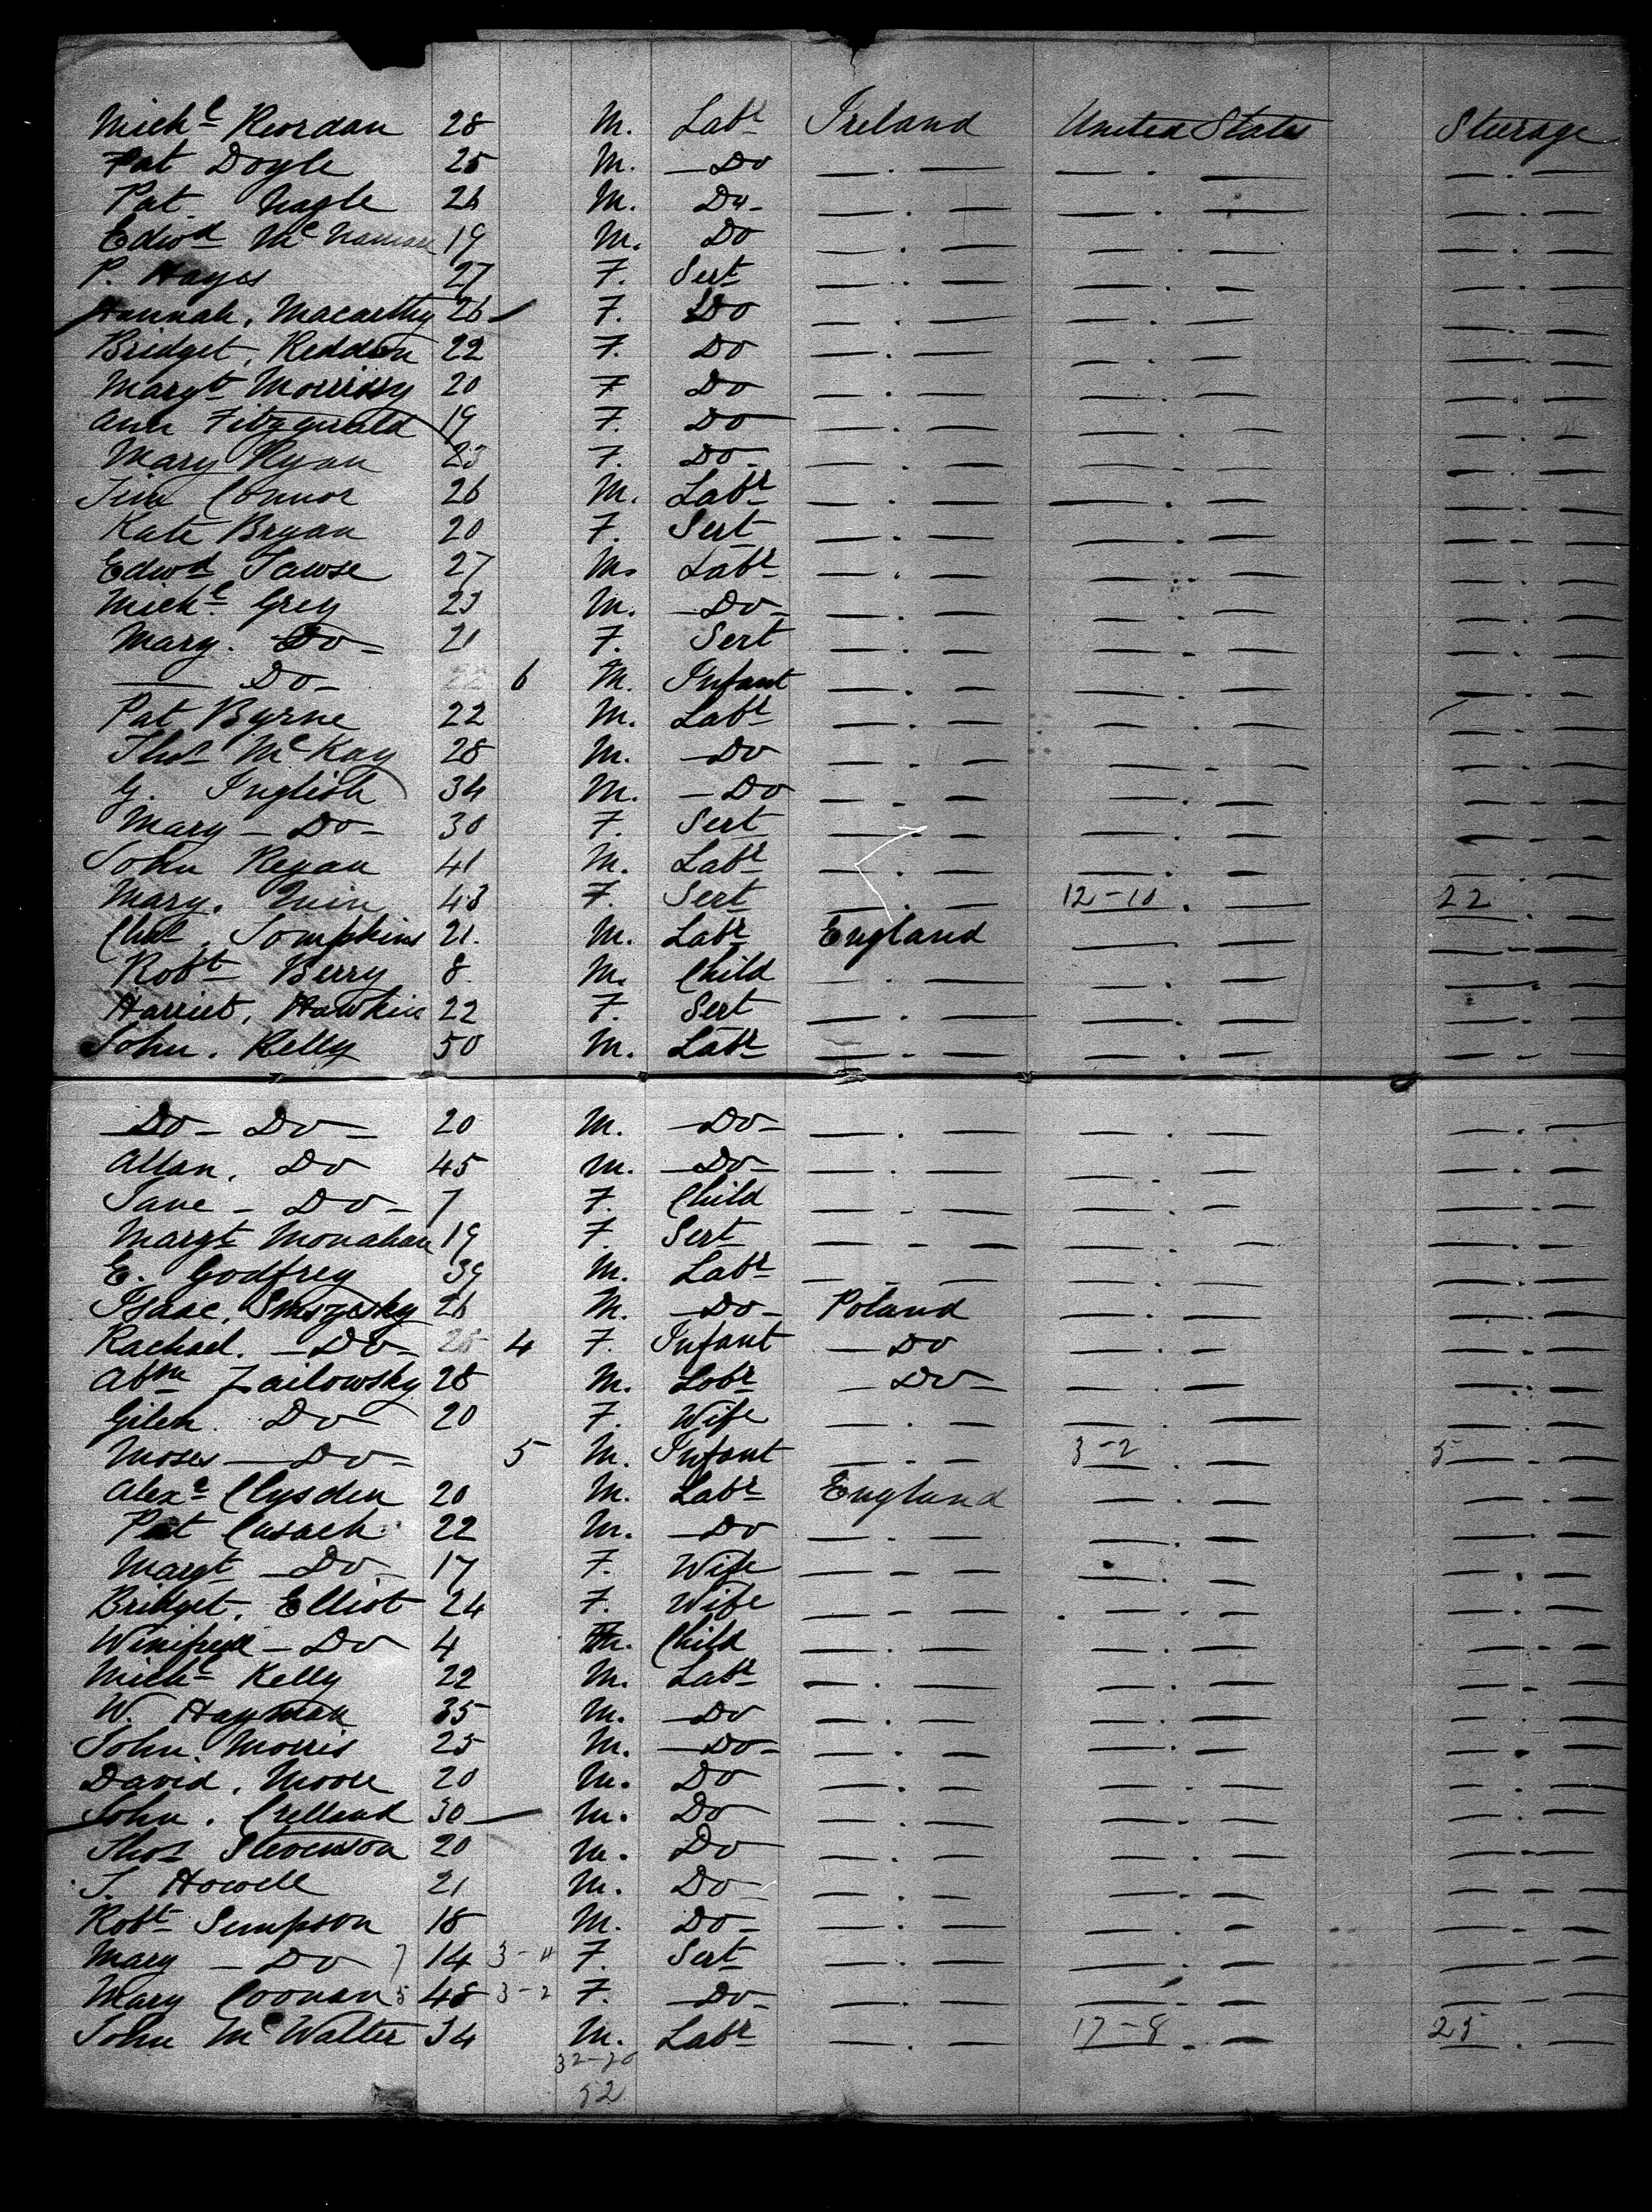 Michl Reordan 28 M. Labr Ireland United States Steerage
Pat Doyle 25 M. Do
Pat Nagle 26 M. Do
Edwd McNamara 19 M. Do
P. Hayes 27 F. Sert
Hannah, Macarthy 26 F. Do
Bridget, Reddan 22 F. Do
Margt Morrissy 20 F Do
Ann Fitzgerald 19 F. Do
Mary Ryan 23 F. Do
Jim Connor 26 M. Labr
Kate Bryan 20 F. Sert
Edwd Tawse 27 M. Labr
Michl Grey 23 M. Do
Mary. Do 21 F. Sert
Do 6 M. Infant
Pat Byrne 22 M. Labr
Thos McKay 28 M. Do
G. Inglish 34 M. Do
Mary Do 30 F. Sert
John Regan 41 M. Labr
Mary. Quin 43 F. Sert 12-10 22
Chas. Tompkins 21. M. Labr England
Robt Berry 8 M. Child
Harriet, Hawkins 22 F. Sert
John. Kelly 50 M. Labr
Do Do 20 M. Do
Allan. Do 45 M. Do
Jane Do 7 F. Child
Margt Monahan 19 F. Sert
E. Godfrey 39 M. Labr
Isaac. 26 M. Do Poland
Rachael. Do 4 F. Infant Do
Abm Zailowsky 28 M. Labr Do
Gilen. Do 20 F. Wife
Moses Do 5 M. Infant 3-2 5
Alexr Clysden 20 M. Labr England
Pat Cusack 22 M. Do
Margt Do 17 F. Wife
Bridget. Elliot 24 F. Wife
Winifred Do 4 Child
Michl Kelly 22 M. Labr
W. Hayman 35 M. Do
John. Morris 25 M. Do
David. Moore 20 M. Do
John. Crelland 30 M. Do
Thos Stevenson 20 M. Do
J. Howell 21 M. Do
Robt Simpson 18 M. Do
Mary Do 7 14 3-4 F. Sert
Mary Coonan 5 48 3-2 F. Do
John McWalter 34 M. Labr 17-8 25
32-20
52